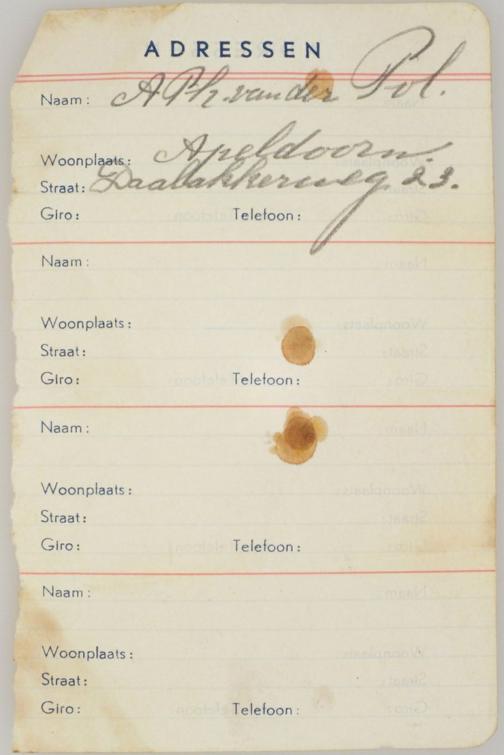 ADRESSEN
Naam: A Ph. van der Pol.
Woonplaats: Apeldoorn.
Straat: Daalakkerweg 23.
Giro: Telefoon:
Naam:
Woonplaats:
Straat:
Giro: Telefoon:
Naam:
Woonplaats:
Straat:
Giro: Telefoon:
Naam:
Woonplaats:
Straat:
Giro: Telefoon: